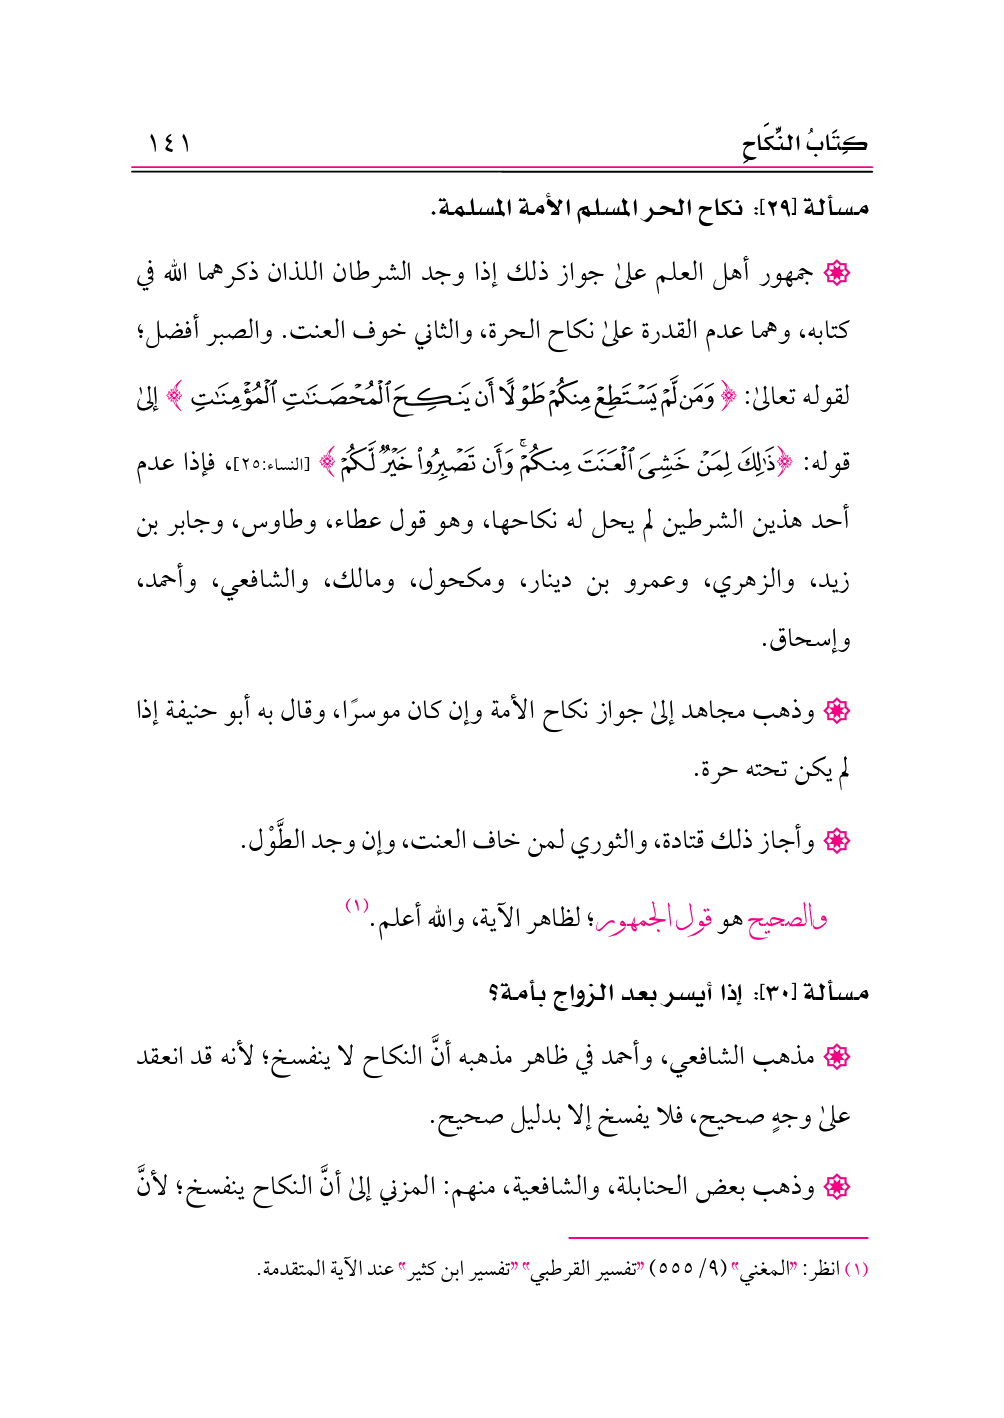 كِتَابُ النِّكَاحِ ١٤١
مسألة [٢٩]: نكاح الحر المسلم الأمة المسلمة.
جمهور أهل العلم علىٰ جواز ذلك إذا وجد الشرطان اللذان ذكرهما الله في
كتابه، وهما عدم القدرة علىٰ نكاح الحرة، والثاني خوف العنت. والصبر أفضل؛
لقوله تعالىٰ: ﴿وَمَن لَّمْ يَسْتَطِعْ مِنكُمْ طَوْلًا أَن يَنكِحَ ٱلْمُحْصَنَٰتِ ٱلْمُؤْمِنَٰتِ﴾ إلىٰ
قوله: ﴿ذَٰلِكَ لِمَنْ خَشِىَ ٱلْعَنَتَ مِنكُمْ ۚ وَأَن تَصْبِرُوا۟ خَيْرٌ لَّكُمْ﴾ [النساء:٢٥]، فإذا عدم
أحد هذين الشرطين لم يحل له نكاحها، وهو قول عطاء، وطاوس، وجابر بن
زيد، والزهري، وعمرو بن دينار، ومكحول، ومالك، والشافعي، وأحمد،
وإسحاق.
وذهب مجاهد إلىٰ جواز نكاح الأمة وإن كان موسرًا، وقال به أبو حنيفة إذا
لم يكن تحته حرة.
وأجاز ذلك قتادة، والثوري لمن خاف العنت، وإن وجد الطَّوْل.
والصحيح هو قول الجمهور؛ لظاهر الآية، والله أعلم.(١)
مسألة [٣٠]: إذا أيسر بعد الزواج بأمة؟
مذهب الشافعي، وأحمد في ظاهر مذهبه أنَّ النكاح لا ينفسخ؛ لأنه قد انعقد
علىٰ وجهٍ صحيح، فلا يفسخ إلا بدليل صحيح.
وذهب بعض الحنابلة، والشافعية، منهم: المزني إلىٰ أنَّ النكاح ينفسخ؛ لأنَّ
(١) انظر: "المغني" (٩/ ٥٥٥) "تفسير القرطبي" "تفسير ابن كثير" عند الآية المتقدمة.